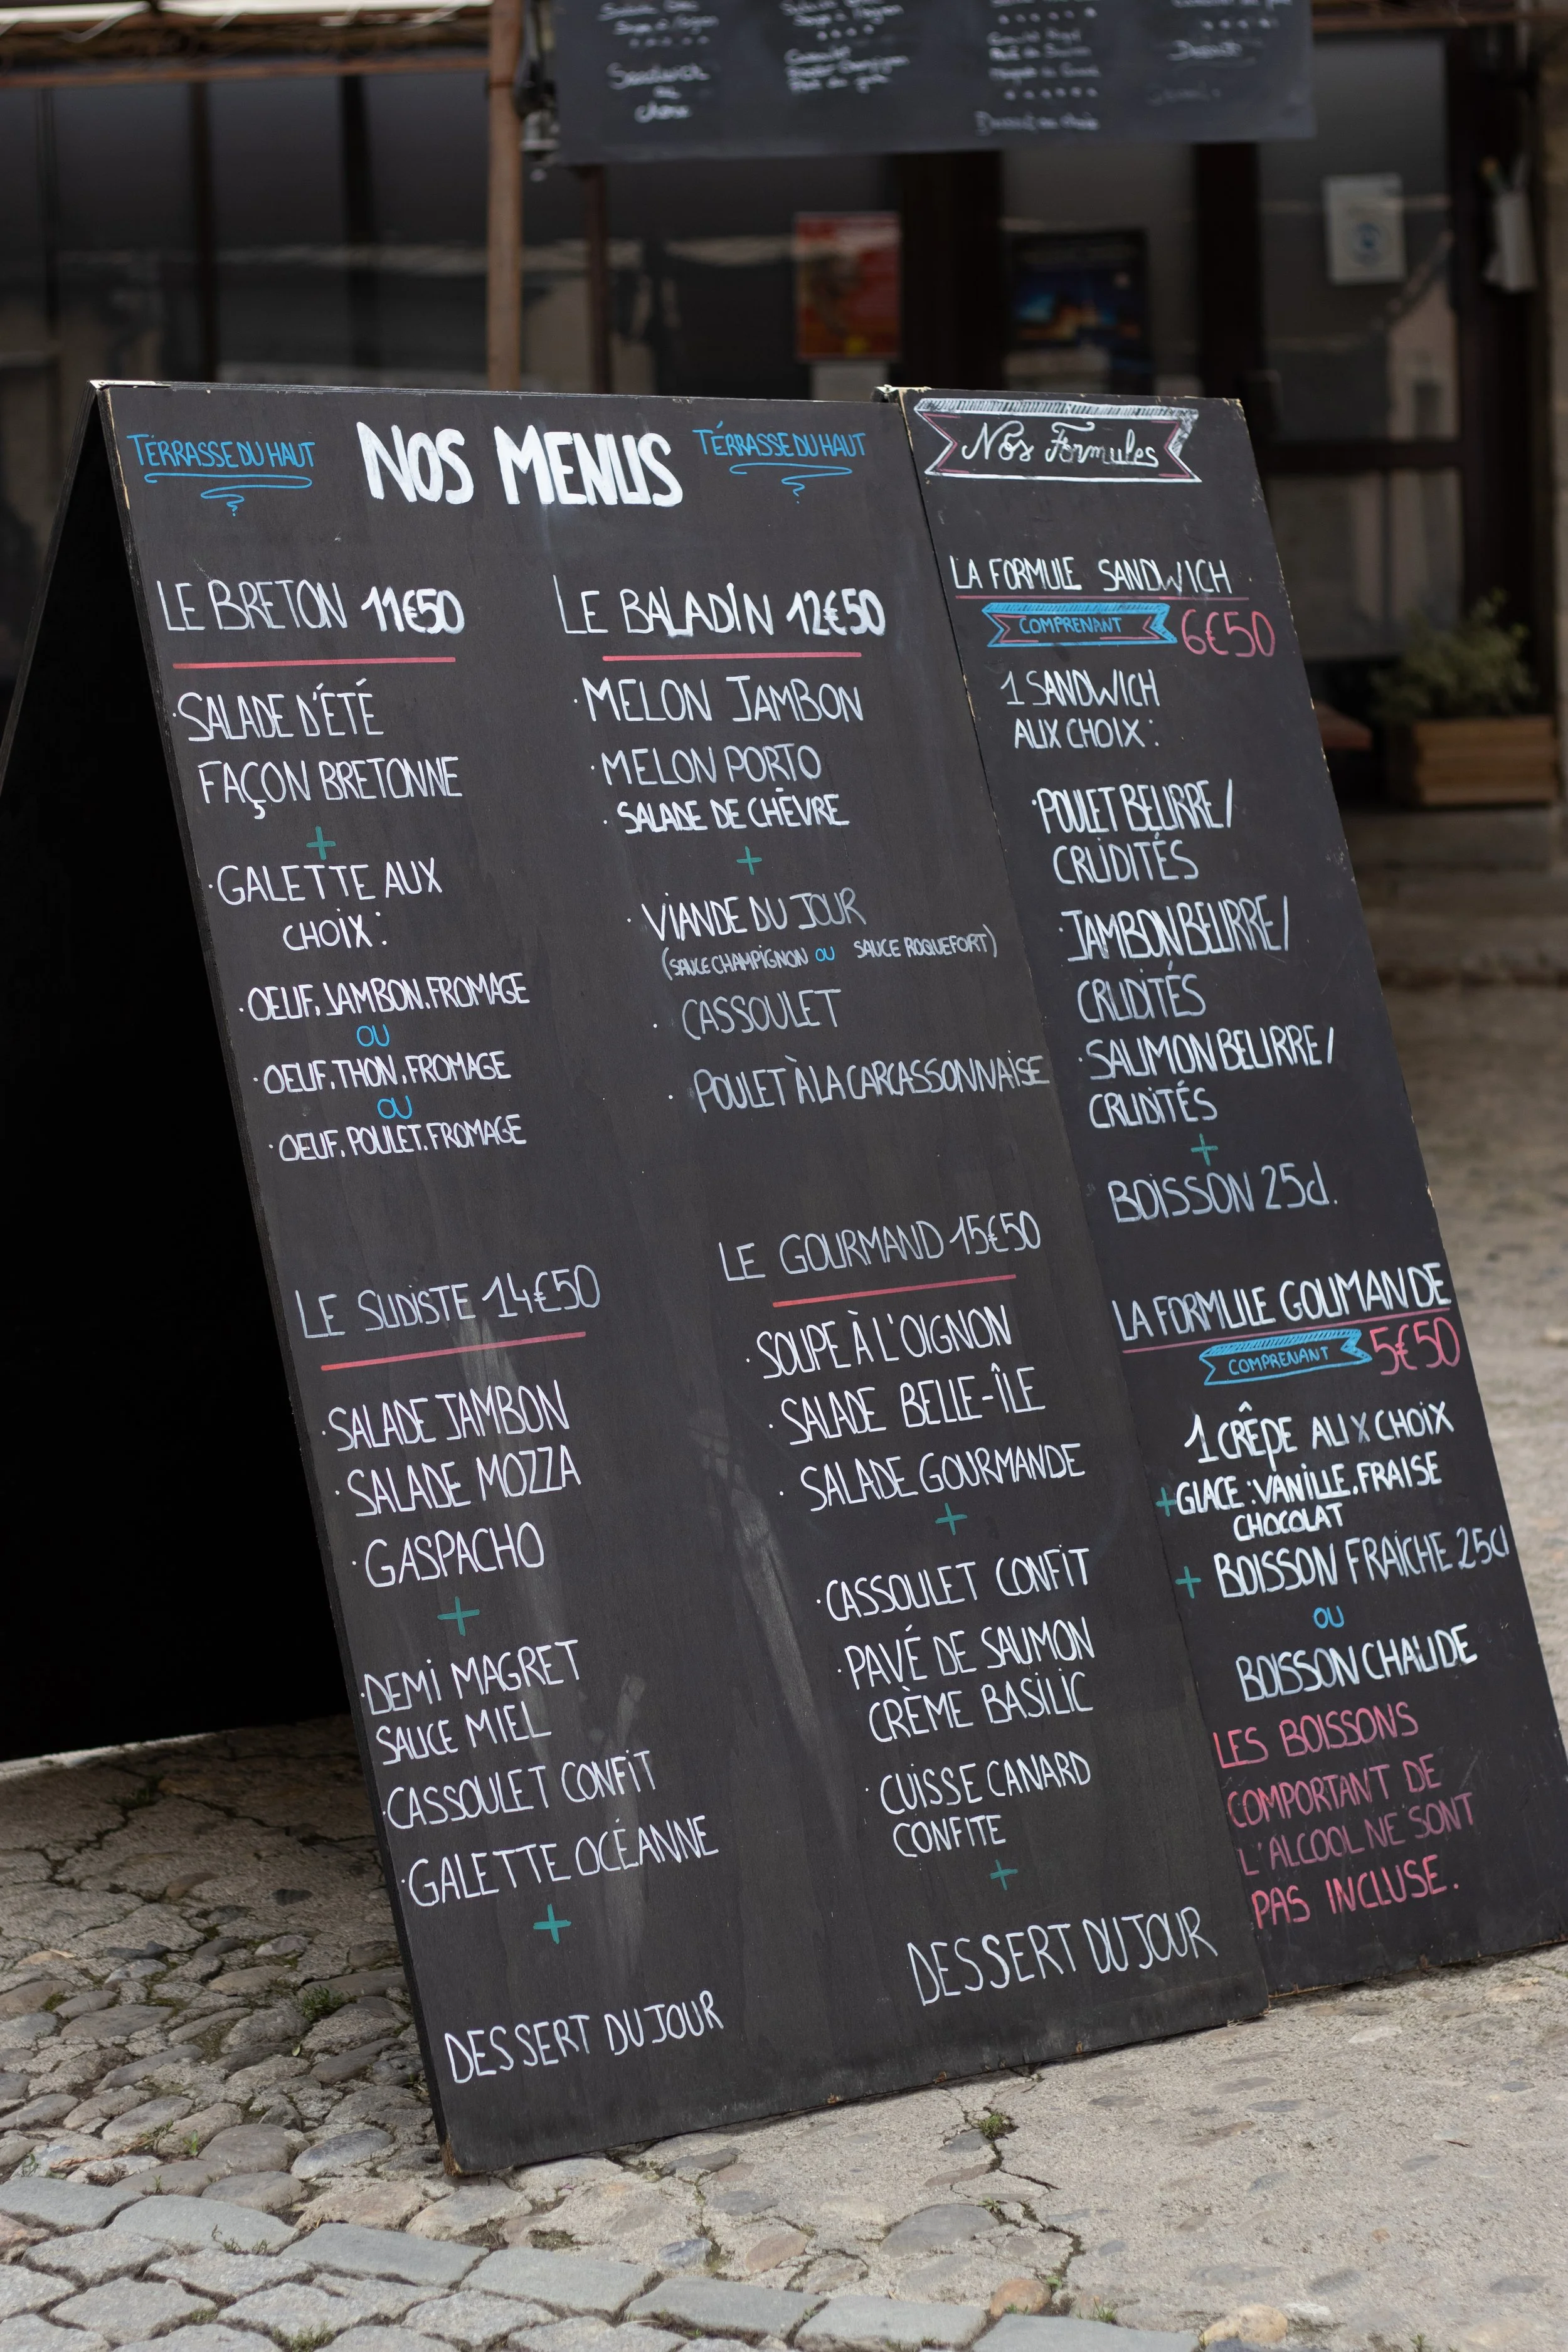 Sandwich
TÉRRASSE DU HAUT
NOS MENUS
TÉRRASSE DU HAUT
LE BRETON 11€50
·SALADE D'ÉTÉ
FAÇON BRETONNE
+
·GALETTE AUX
CHOIX :
·OEUF, JAMBON, FROMAGE
OU
·OEUF, THON, FROMAGE
OU
·OEUF, POULET, FROMAGE
LE BALADIN 12€50
·MELON JAMBON
·MELON PORTO
·SALADE DE CHÈVRE
+
·VIANDE DU JOUR
(SAUCE CHAMPIGNON OU SAUCE ROQUEFORT)
·CASSOULET
·POULET À LA CARCASSONNAISE
LE SUDISTE 14€50
·SALADE JAMBON
·SALADE MOZZA
·GASPACHO
+
·DEMI MAGRET
SAUCE MIEL
·CASSOULET CONFIT
·GALETTE OCÉANNE
+
DESSERT DU JOUR
LE GOURMAND 15€50
·SOUPE À L'OIGNON
·SALADE BELLE-ÎLE
·SALADE GOURMANDE
+
·CASSOULET CONFIT
·PAVÉ DE SAUMON
CRÈME BASILIC
·CUISSE CANARD
CONFITE
+
DESSERT DU JOUR
Nos Formules
LA FORMULE SANDWICH
COMPRENANT 6€50
1 SANDWICH
AUX CHOIX :
·POULET BEURRE/
CRUDITÉS
·JAMBON BEURRE/
CRUDITÉS
·SAUMON BEURRE/
CRUDITÉS
+
BOISSON 25cl.
LA FORMULE GOUMANDE
COMPRENANT 5€50
1 CRÊPE AUX CHOIX
+GLACE : VANILLE, FRAISE
CHOCOLAT
+ BOISSON FRAICHE 25cl
OU
BOISSON CHAUDE
LES BOISSONS
COMPORTANT DE
L'ALCOOL NE SONT
PAS INCLUSE.